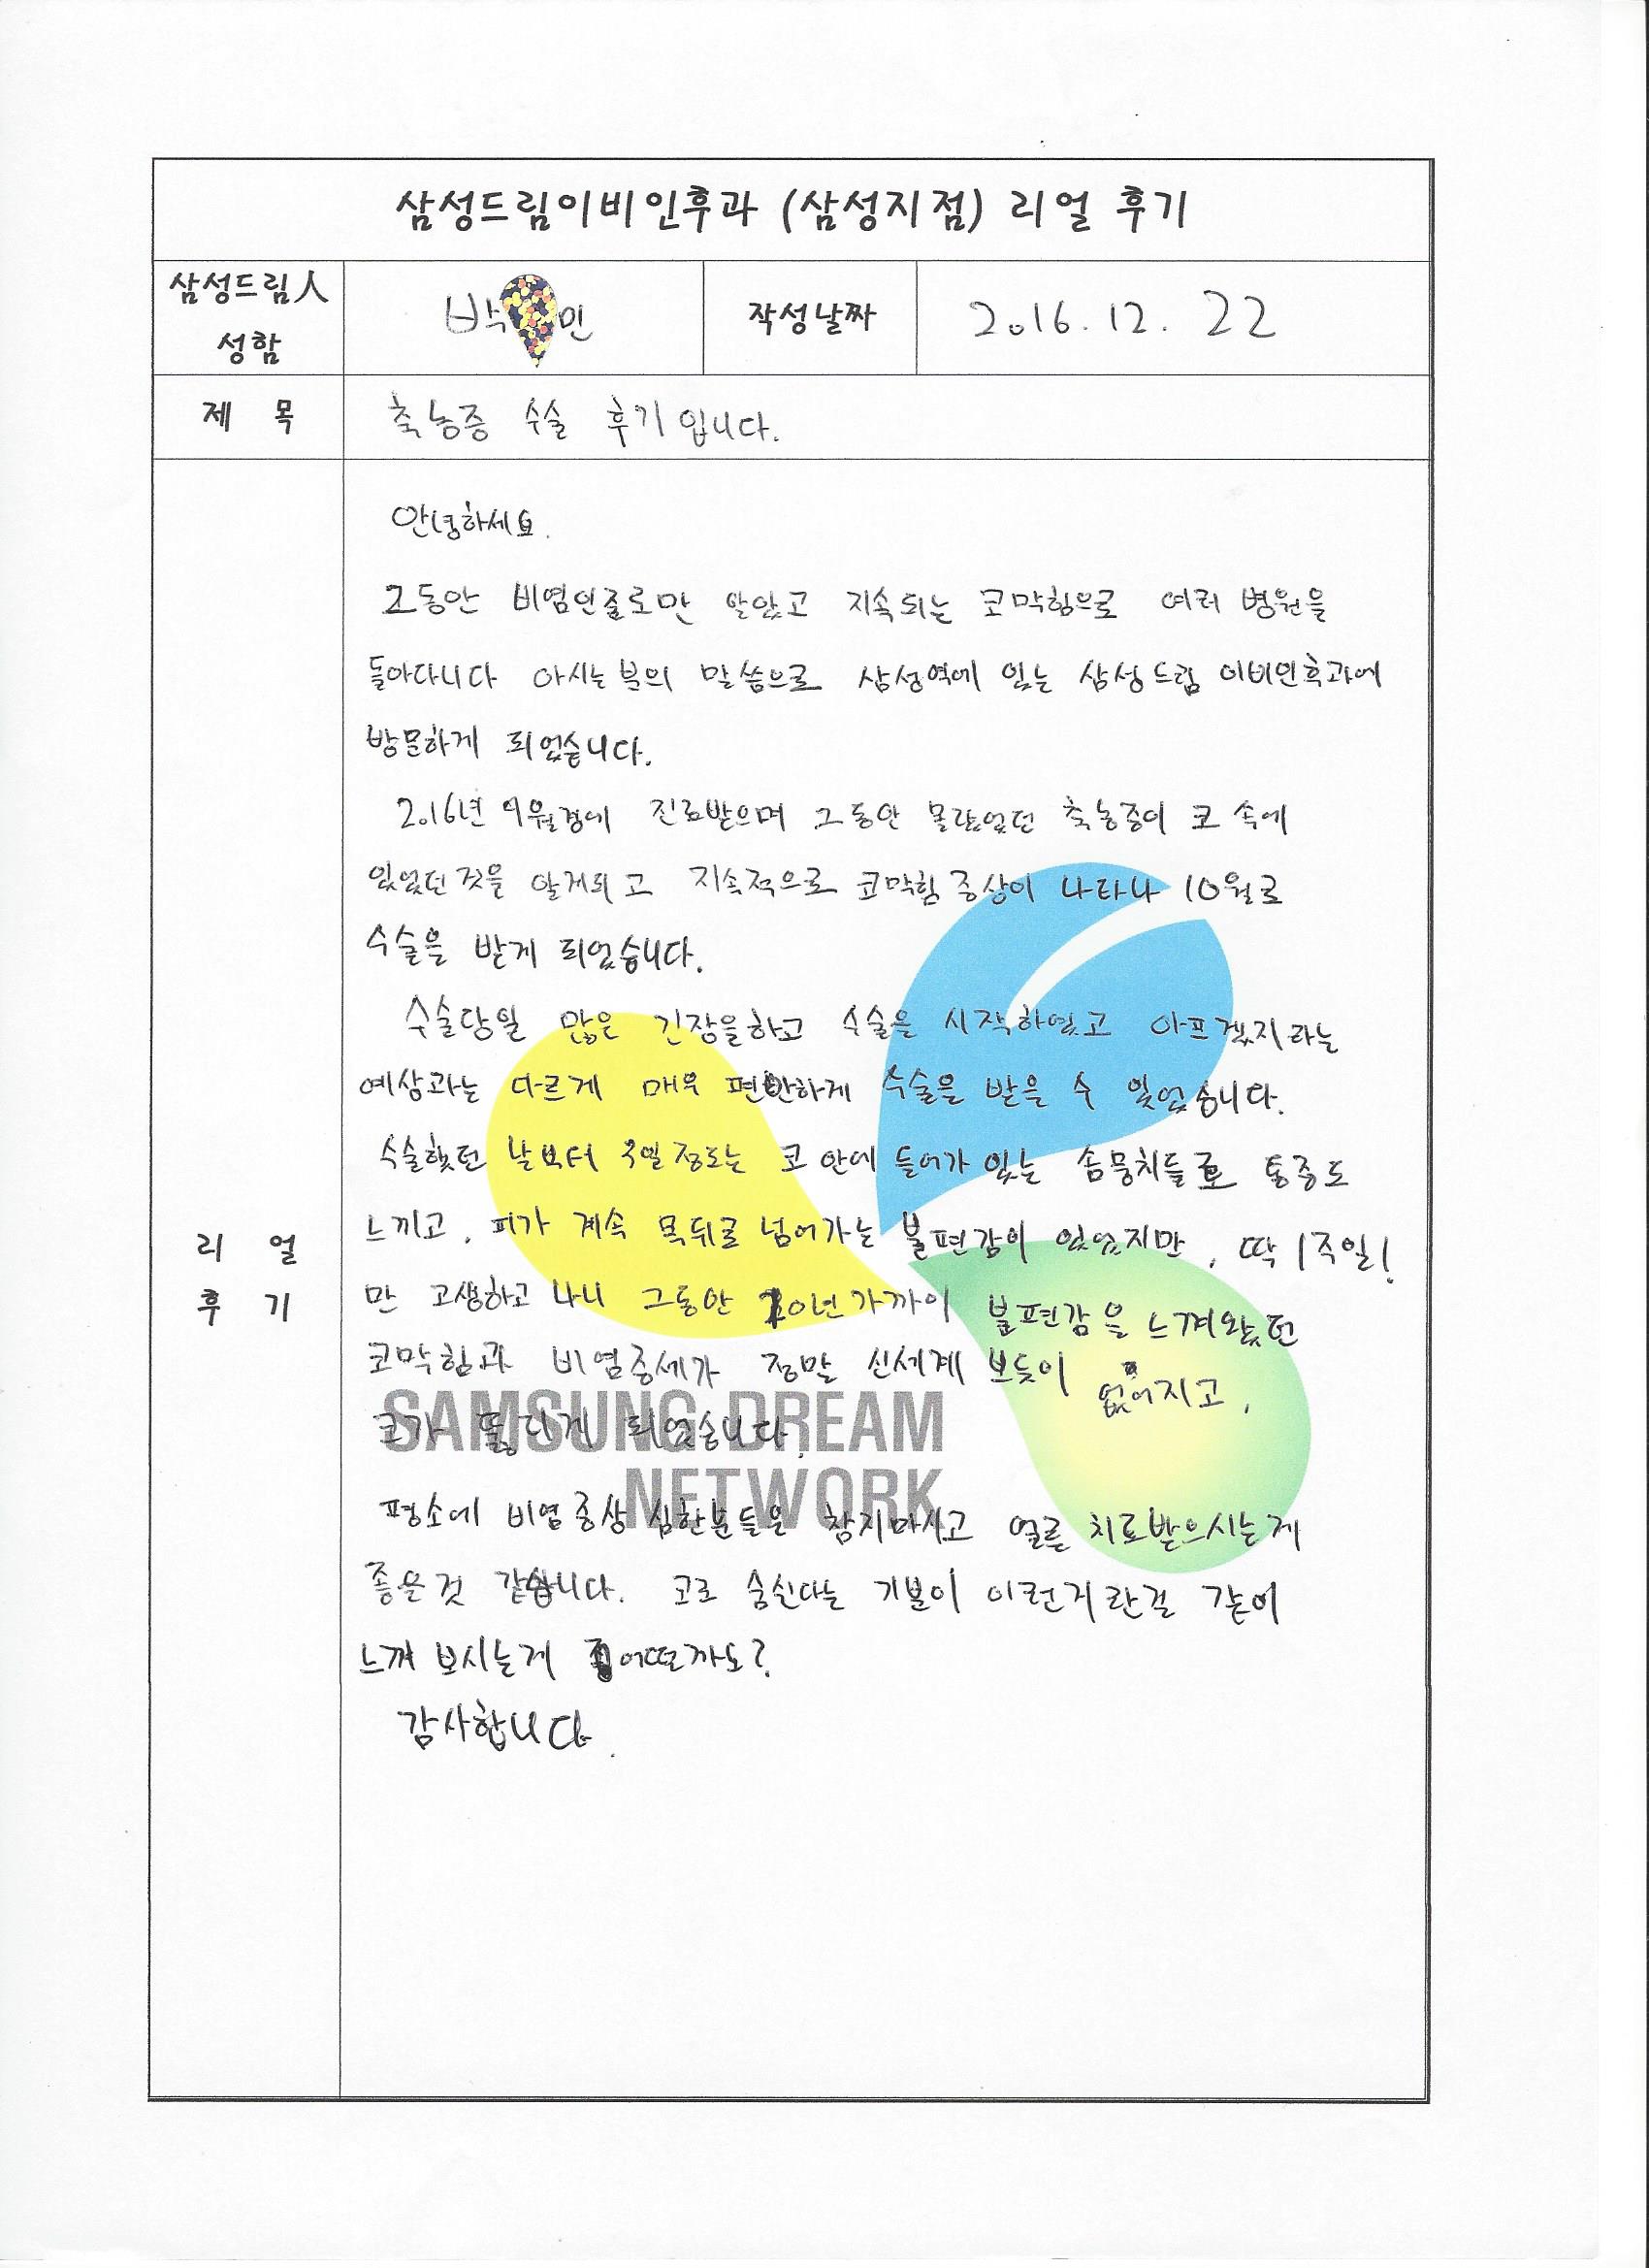 삼성드림이비인후과 (삼성지점) 리얼 후기
삼성드림人
성함
박 민
작성날짜
2016. 12. 22
제 목
축농증 수술 후기입니다.
안녕하세요.
그동안 비염인줄로만 알았고 지속되는 코막힘으로 여러 병원을
돌아다니다 아시는 분의 말씀으로 삼성역에 있는 삼성드림 이비인후과에
방문하게 되었습니다.
2016년 9월경에 진료받으며 그동안 몰랐었던 축농증이 코 속에
있었던 것을 알게되고 지속적으로 코막힘 증상이 나타나 10월로
수술을 받게 되었습니다.
수술당일 많은 긴장을하고 수술을 시작하였고 아프겠지라는
예상과는 다르게 매우 편안하게 수술을 받을 수 있었습니다.
수술했던 날부터 정도는 코 안에 들어가 있는 솜뭉치들로 통증도
느끼고, 피가 계속 목뒤로 넘어가는 불편감이 있었지만, 딱 1주일!
만 고생하고 나니 그동안 가까이 불편감을 느껴왔던
코막힘과 비염증세가 정말 신세계 보듯이 없어지고,
코가 뚫리게 되었습니다.
평소에 비염증상 심한분들은 참지마시고 얼른 치료받으시는게
좋을것 같습니다. 코로 숨쉰다는 기분이 이런거란걸 같이
느껴 보시는게 어떨까요?
감사합니다.
리 얼
후 기
SAMSUNG DREAM
NETWORK